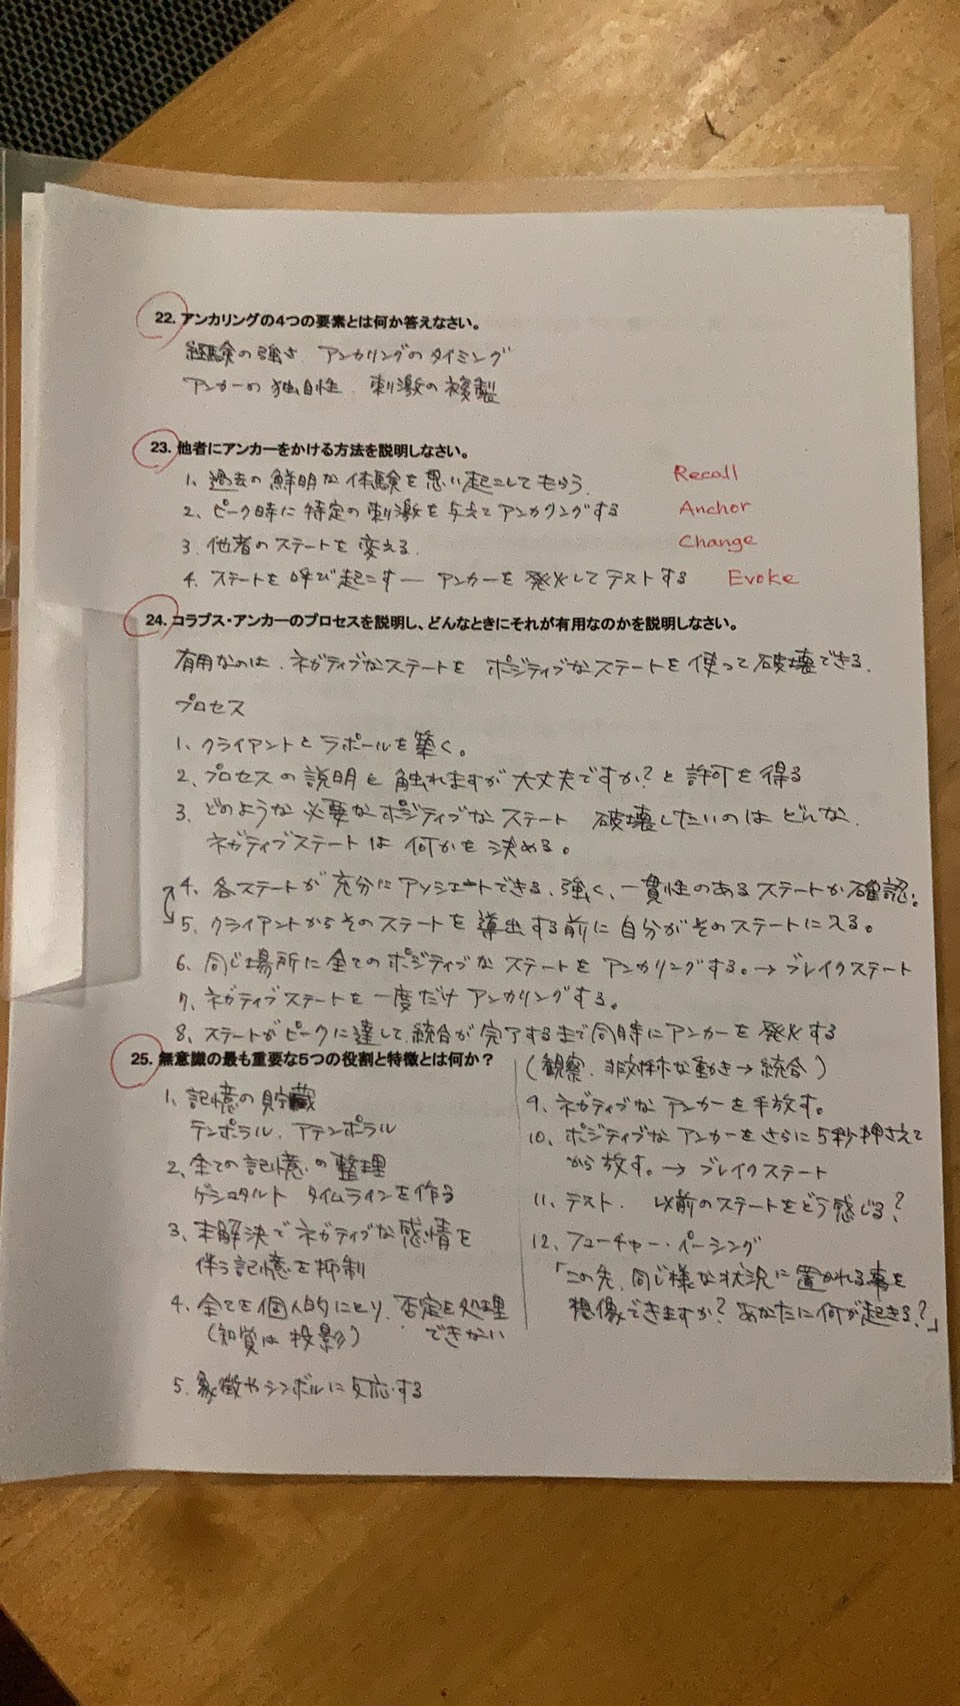 22. アンカリングの4つの要素とは何か答えなさい。
経験の強さ、アンカリングのタイミング
アンカーの独自性、刺激の複製
23. 他者にアンカーをかける方法を説明しなさい。
1、過去の鮮明な体験を思い起こしてもらう Recall
2、ピーク時に特定の刺激を与えてアンカリングする Anchor
3、他者のステートを変える Change
4、ステートを呼び起こす ― アンカーを発火してテストする Evoke
24. コラプス・アンカーのプロセスを説明し、どんなときにそれが有用なのかを説明しなさい。
有用なのは、ネガティブなステートを ポジティブなステートを使って破壊できる。
プロセス
1、クライアントとラポールを築く。
2、プロセスの説明と触れますが大丈夫ですか?と許可を得る
3、どのような必要なポジティブなステート 破壊したいのはどんな
ネガティブステートは何かを決める。
4、各ステートが充分にアソシエートできる、強く、一貫性のあるステートか確認。
5、クライアントからそのステートを導出する前に自分がそのステートに入る。
6、同じ場所に全てのポジティブなステートをアンカリングする。→ブレイクステート
7、ネガティブステートを一度だけアンカリングする。
8、ステートがピークに達して統合が完了するまで同時にアンカーを発火する
(観察、非対称な動き→統合)
9、ネガティブなアンカーを手放す。
10、ポジティブなアンカーをさらに5秒押さえて
から放す。→ブレイクステート
11、テスト、以前のステートをどう感じる?
12、フューチャー・ペーシング
「この先、同じ様な状況に置かれる事を
想像できますか? あなたに何が起きる?」
25. 無意識の最も重要な5つの役割と特徴とは何か?
1、記憶の貯蔵
テンポラル、アテンポラル
2、全ての記憶の整理
ゲシュタルト タイムラインを作る
3、未解決でネガティブな感情を
伴う記憶を抑制
4、全てを個人的にとり、否定を処理
できない
(知覚は投影)
5、象徴やシンボルに反応する